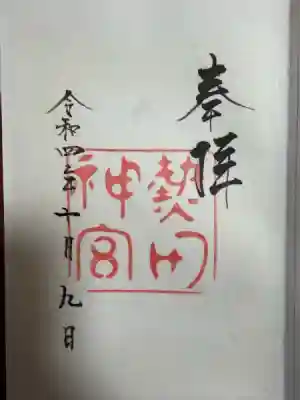 奉拝
熱田
神宮
令和四年十月九日